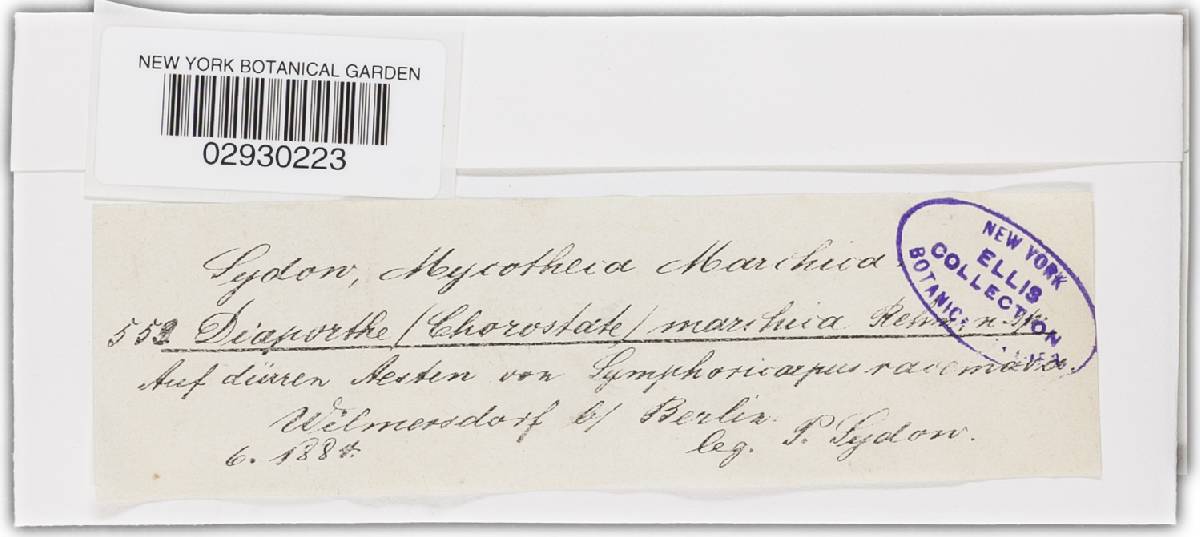 NEW YORK BOTANICAL GARDEN
02930223
Sydow, Mycotheca Marchica
Diaporthe (Chorostate) marchica Rehm n. sp.
Auf dürren Aesten von Symphoricarpus racemosa.
Wilmersdorf b/ Berlin.
6. 1884.
leg. P. Sydow.
NEW YORK
ELLIS
COLLECTION